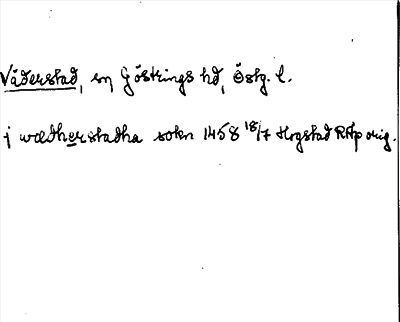 Väderstad, sn, Göstrings hd, Östg. l.
j wædherstadha sokn 1458 18/7 Hogstad RAp orig.